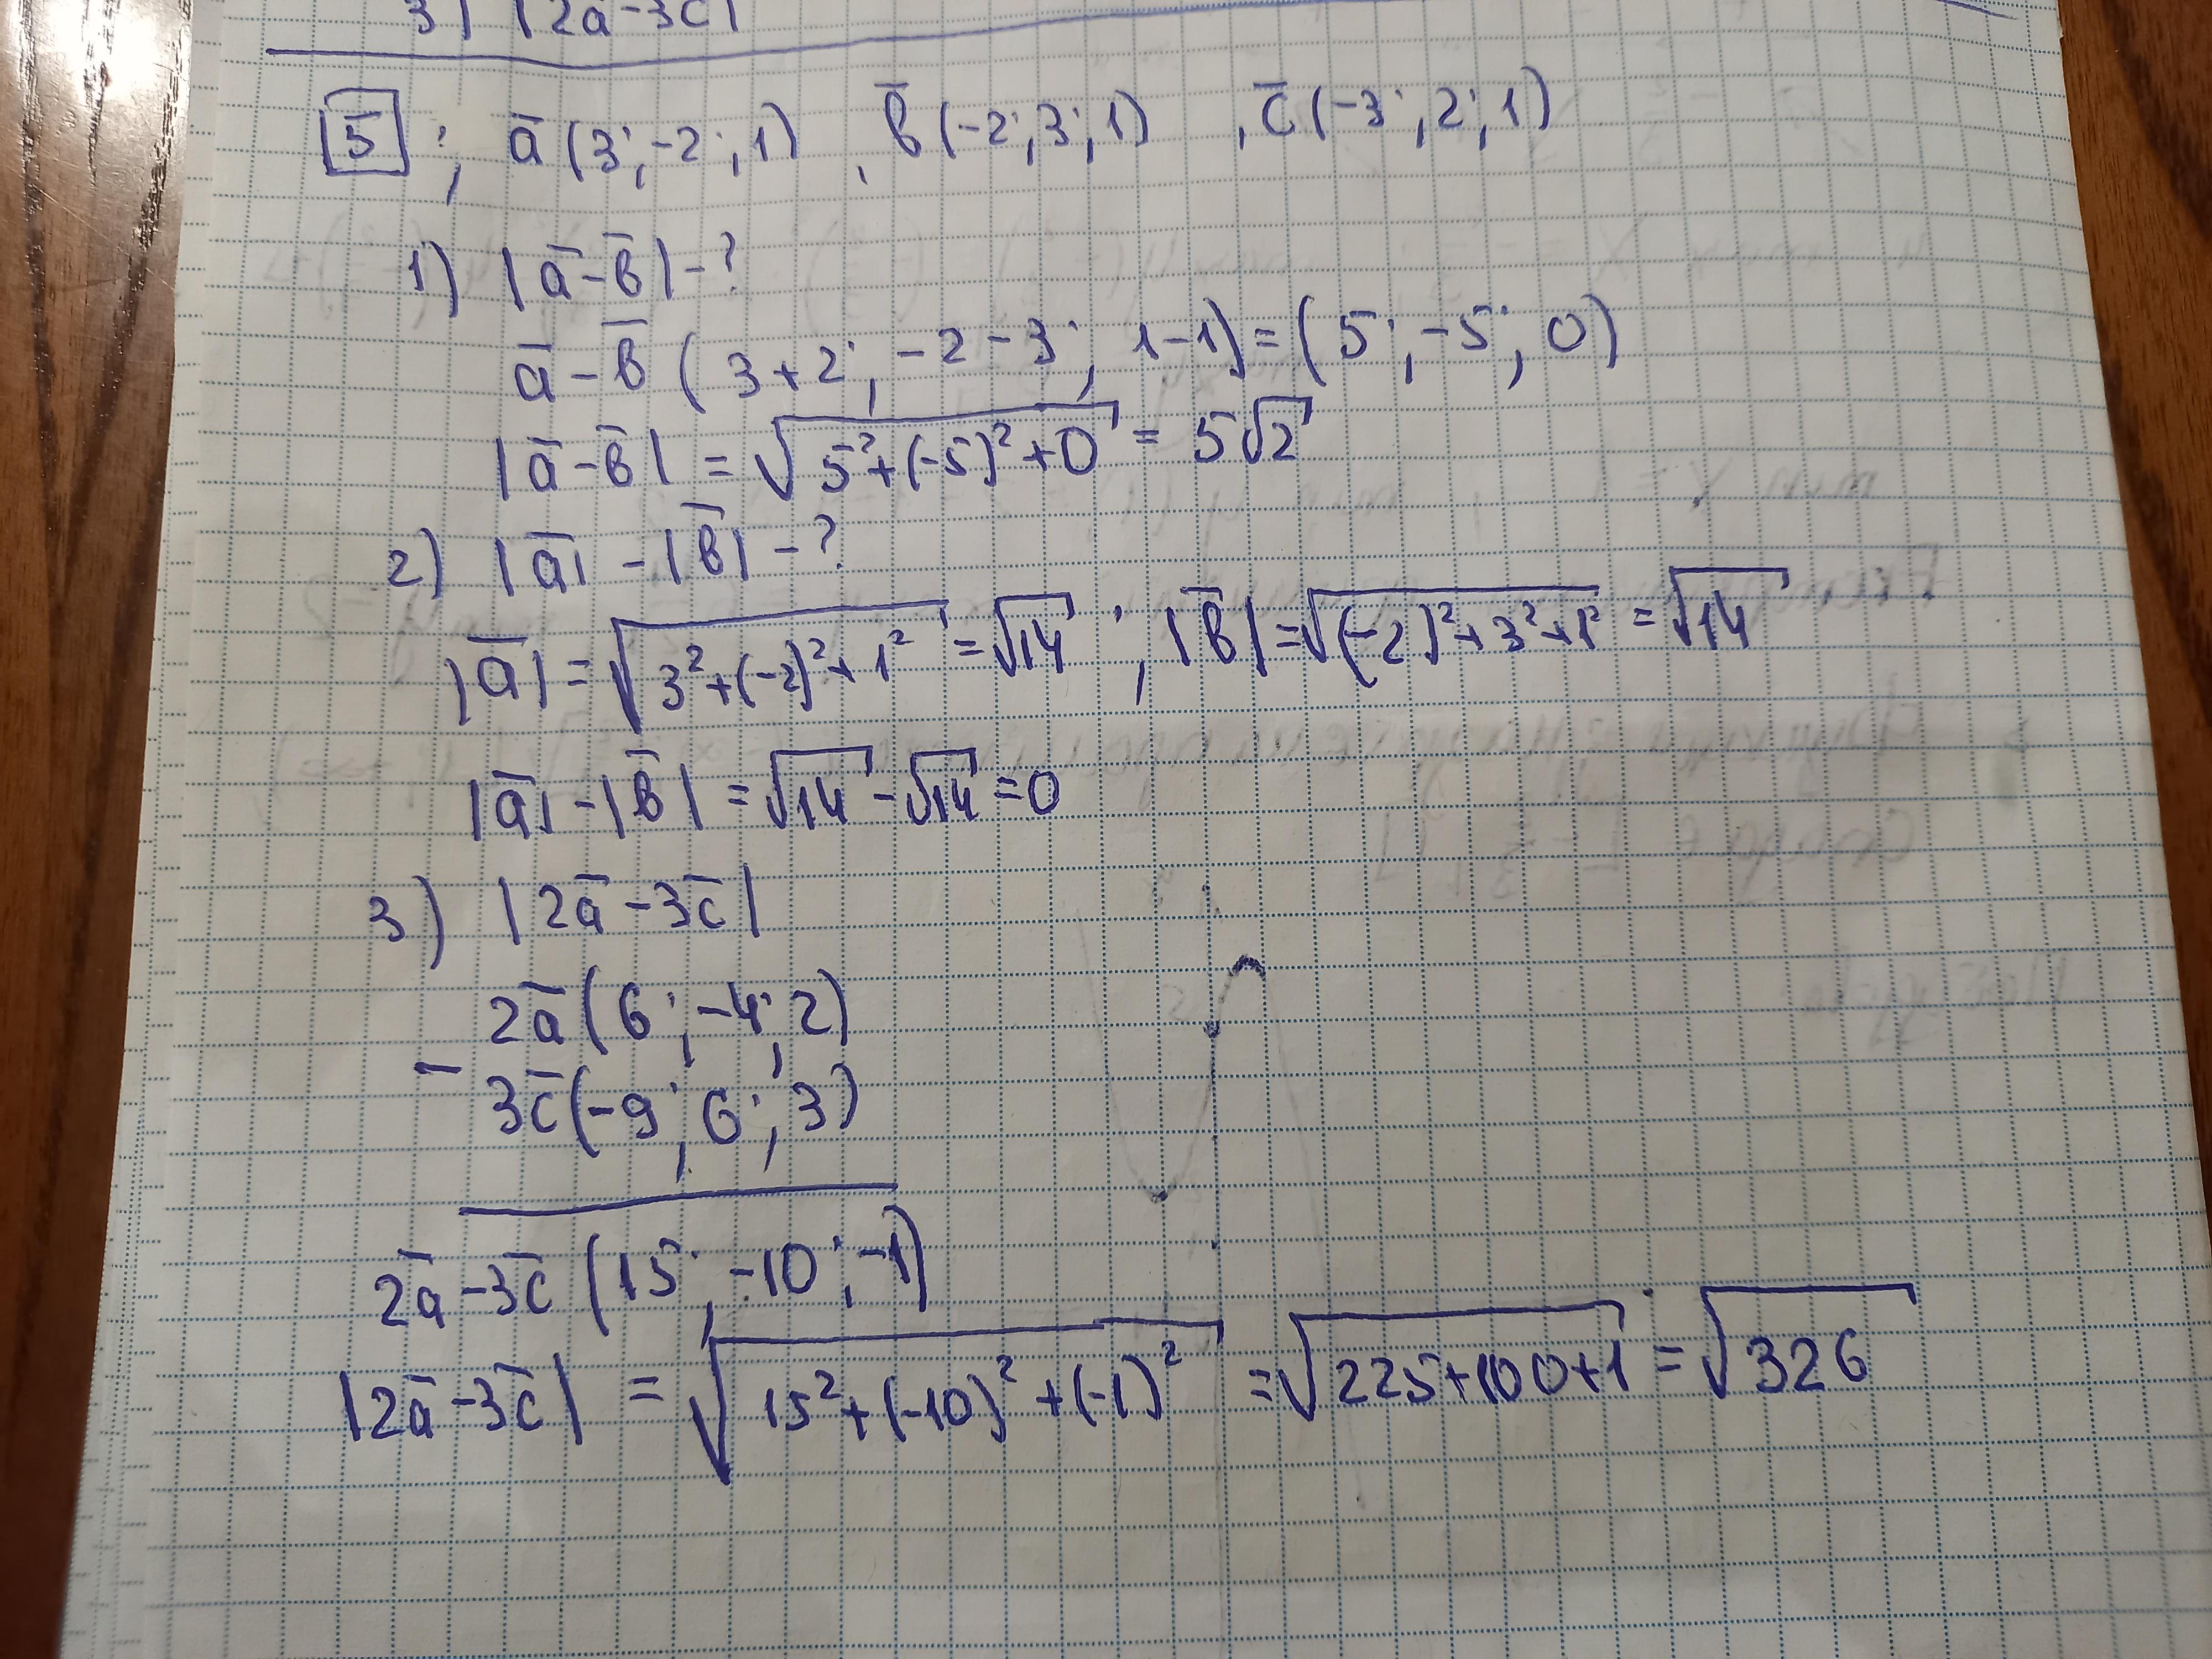 3) |2a̅-3c̅|
5; a̅(3;-2;1), b̅(-2;3;1), c̅(-3;2;1)
1) |a̅-b̅|-?
a̅-b̅(3+2; -2-3; 1-1)=(5;-5;0)
|a̅-b̅| = √(5²+(-5)²+0) = 5√2
2) |a̅|-|b̅|-?
|a̅|=√(3²+(-2)²+1²)=√14; |b̅|=√((-2)²+3²+1²)=√14
|a̅|-|b̅|=√14-√14=0
3) |2a̅-3c̅|
2a̅(6;-4;2)
-
3c̅(-9;6;3)
2a̅-3c̅(15;-10;-1)
|2a̅-3c̅| = √(15²+(-10)²+(-1)²) =√(225+100+1)=√326